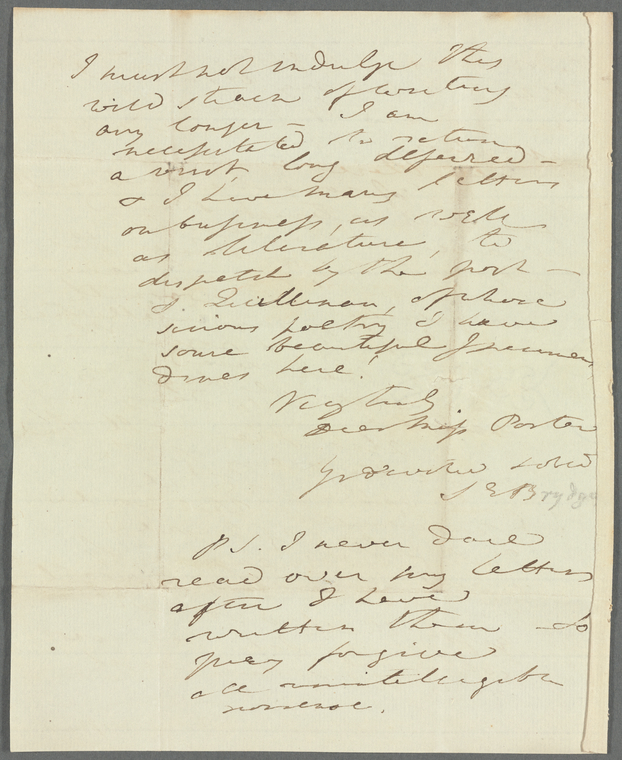 I must not indulge this
wild strain of writing
any longer – I am
necessitated to return
a most long deferred –
letters
& I have many
on business, as well
as literature, to
dispatch by the post –
J. Quillinan, of whose
serious poetry I have
some beautiful specimens
dines here!
Very truly
Dear Miss Porter
Yr devoted
S E Brydges
P.S. I never dare
read over my letters
after I have
written them – So
pray forgive
all unintelligible
nonsense.